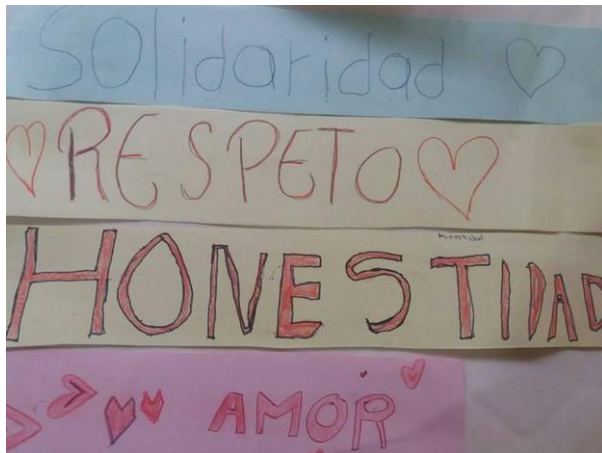 Solidaridad
RESPETO
Honestidad
HONESTIDAD
AMOR